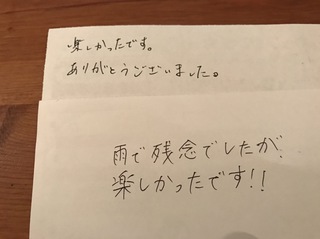 楽しかったです。
ありがとうございました。
雨で残念でしたが
楽しかったです!!